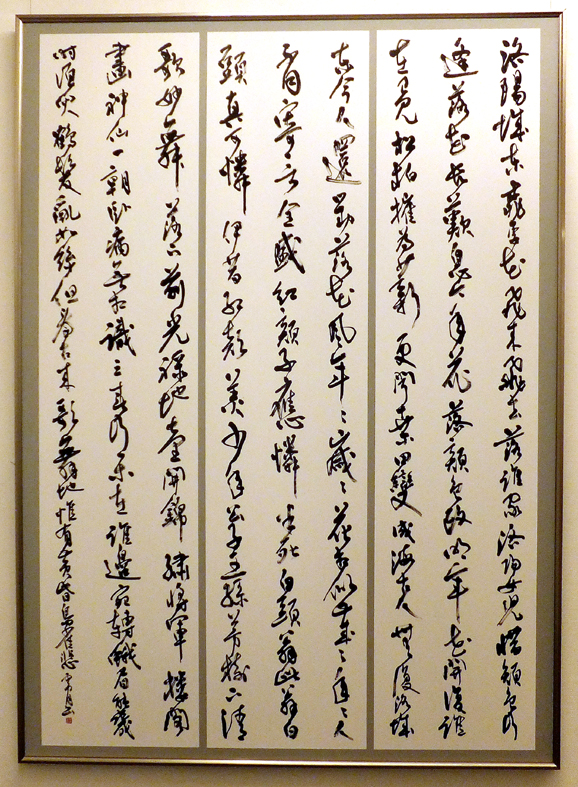 洛陽城東桃李花飛来飛去落誰家洛陽女児惜顔色行
逢落花長歎息今年花落顔色改明年花開復誰
在已見松柏摧為薪更聞桑田變成海古人無復洛城
東今人還對落花風年々歳々花相似歳々年々人
不同寄言全盛紅顔子應憐半死白頭翁此翁白
頭真可憐伊昔紅顔美少年公子王孫芳樹下清
歌妙舞落花前光禄池臺開錦繍将軍楼閣
畫神仙一朝臥病無相識三春行楽在誰邊宛轉蛾眉能幾
時須臾鶴髪亂如絲但看古来歌舞地惟有黄昏鳥雀悲